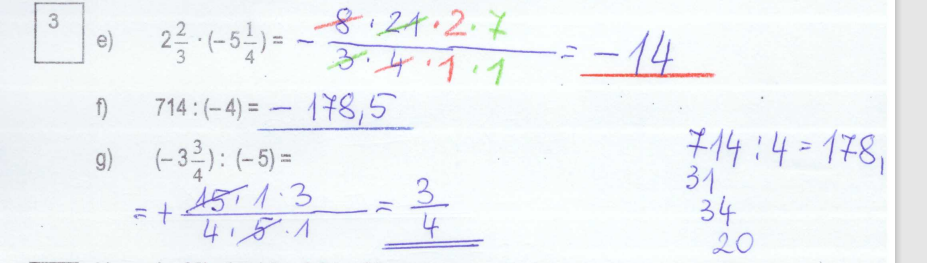 3
e) 2 2/3 · (− 5 1/4) = − 8 · 21 · 2 · 7 / 3 · 4 · 1 · 1 = − 14
f) 714 : (− 4) = − 178,5
g) (− 3 3/4) : (− 5) =
= + 15 · 1 · 3 / 4 · 5 · 1 = 3/4
714 : 4 = 178,
31
34
20